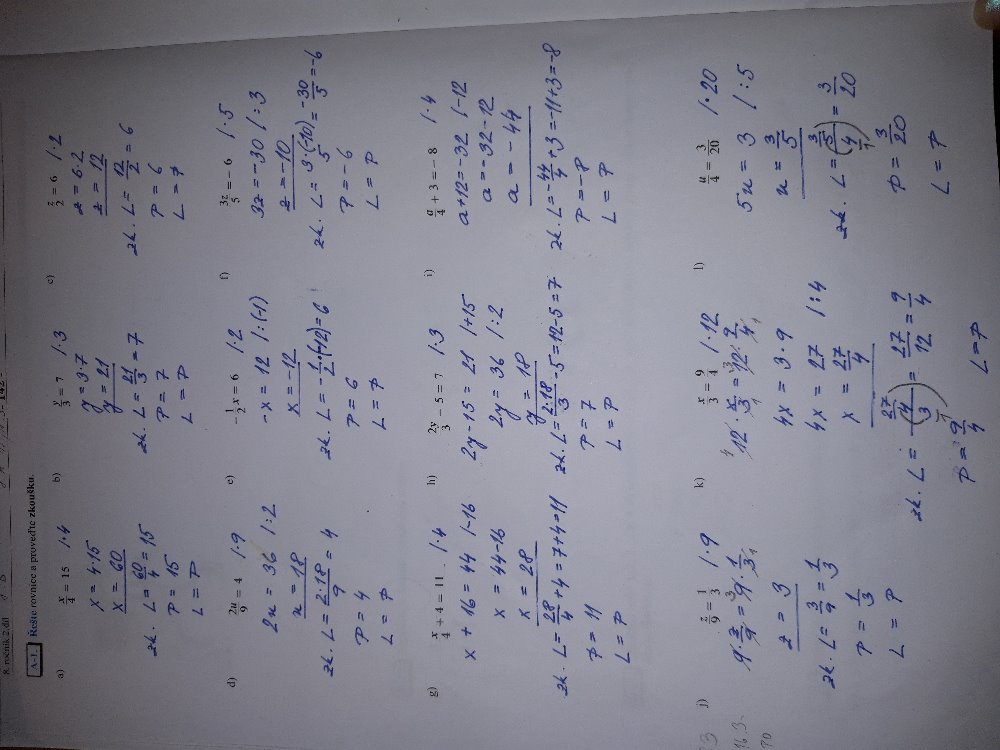 8. ročník 2. díl
A-1. Řešte rovnice a proveďte zkoušku.
a) x/4 = 15 /·4
x = 4·15
x = 60
zk. L = 60/4 = 15
P = 15
L = P
b) y/3 = 7 /·3
y = 3·7
y = 21
zk. L = 21/3 = 7
P = 7
L = P
c) z/2 = 6 /·2
z = 6·2
z = 12
zk. L = 12/2 = 6
P = 6
L = P
d) 2u/9 = 4 /·9
2u = 36 /:2
u = 18
zk. L = 2·18/9 = 4
P = 4
L = P
e) -1/2 x = 6 /·2
-x = 12 /:(-1)
x = -12
zk. L = -1/2·(-12) = 6
P = 6
L = P
f) 3z/5 = -6 /·5
3z = -30 /:3
z = -10
zk. L = 3·(-10)/5 = -30/5 = -6
P = -6
L = P
g) x/4 + 4 = 11 /·4
x + 16 = 44 /-16
x = 44-16
x = 28
zk. L = 28/4 + 4 = 7+4 = 11
P = 11
L = P
h) 2y/3 - 5 = 7 /·3
2y - 15 = 21 /+15
2y = 36 /:2
y = 18
zk. L = 2·18/3 - 5 = 12-5 = 7
P = 7
L = P
i) a/4 + 3 = -8 /·4
a+12 = -32 /-12
a = -32-12
a = -44
zk. L = -44/4 + 3 = -11+3 = -8
P = -8
L = P
j) z/9 = 1/3 /·9
9·z/9 = 9·1/3
z = 3
zk. L = 3/9 = 1/3
P = 1/3
L = P
k) x/3 = 9/4 /·12
12·x/3 = 12·9/4
4x = 3·9
4x = 27 /:4
x = 27/4
zk. L = 27/4 / 3/1 = 27/12 = 9/4
P = 9/4
L = P
l) u/4 = 3/20 /·20
5u = 3 /:5
u = 3/5
zk. L = 3/5 / 4/1 = 3/20
P = 3/20
L = P